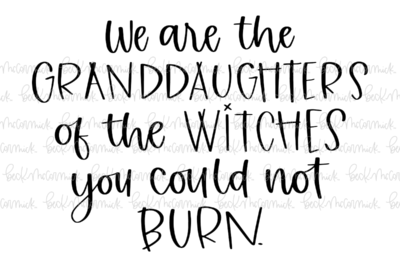 we are the
GRANDDAUGHTERS
of the WITCHES
you could not
BURN.